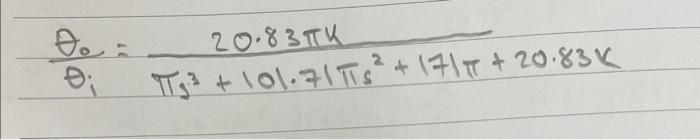 θo/θi = 20.83πK / πs³ + 101.71πs² + 171π + 20.83K